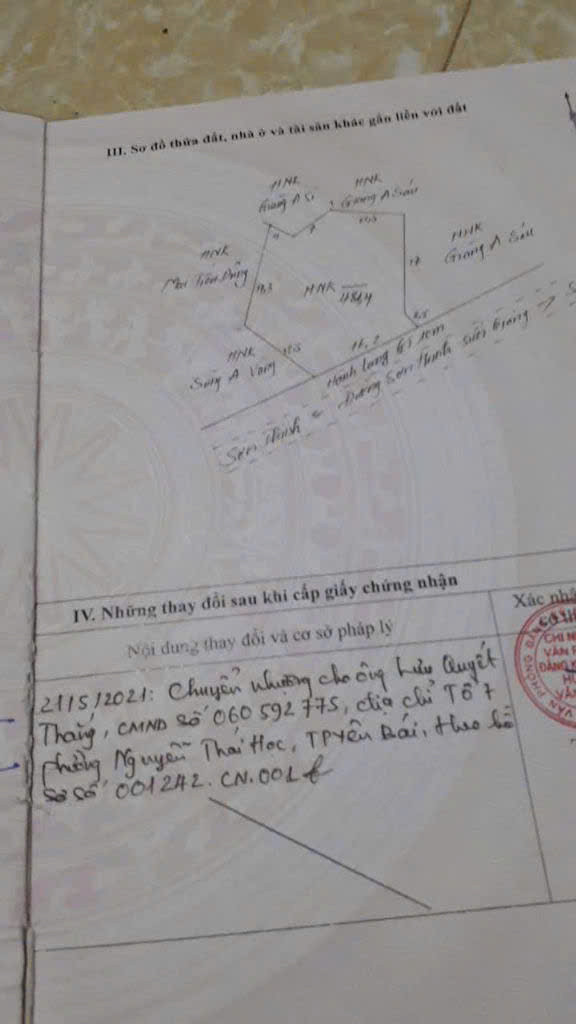 III. Sơ đồ thửa đất, nhà ở và tài sản khác gắn liền với đất
HNK
Giàng A Sì
HNK
Giàng A Sáu
HNK
Giàng A Sáu
HNK
HNK
17
HNK
Sùng A Vàng
Hành lang
Sơn Thịnh
Đường Sơn Thịnh Suối Giàng
IV. Những thay đổi sau khi cấp giấy chứng nhận
Nội dung thay đổi và cơ sở pháp lý
Xác nhậ
21/5/2021: Chuyển nhượng cho ông Lưu Quyết
Thắng, CMND số 060 592 775, địa chỉ Tổ 7
phường Nguyễn Thái Học, TP Yên Bái, theo hồ
sơ số 001242.CN.001
CHI N
VĂN P
ĐĂNG K
VĂN PHÒNG